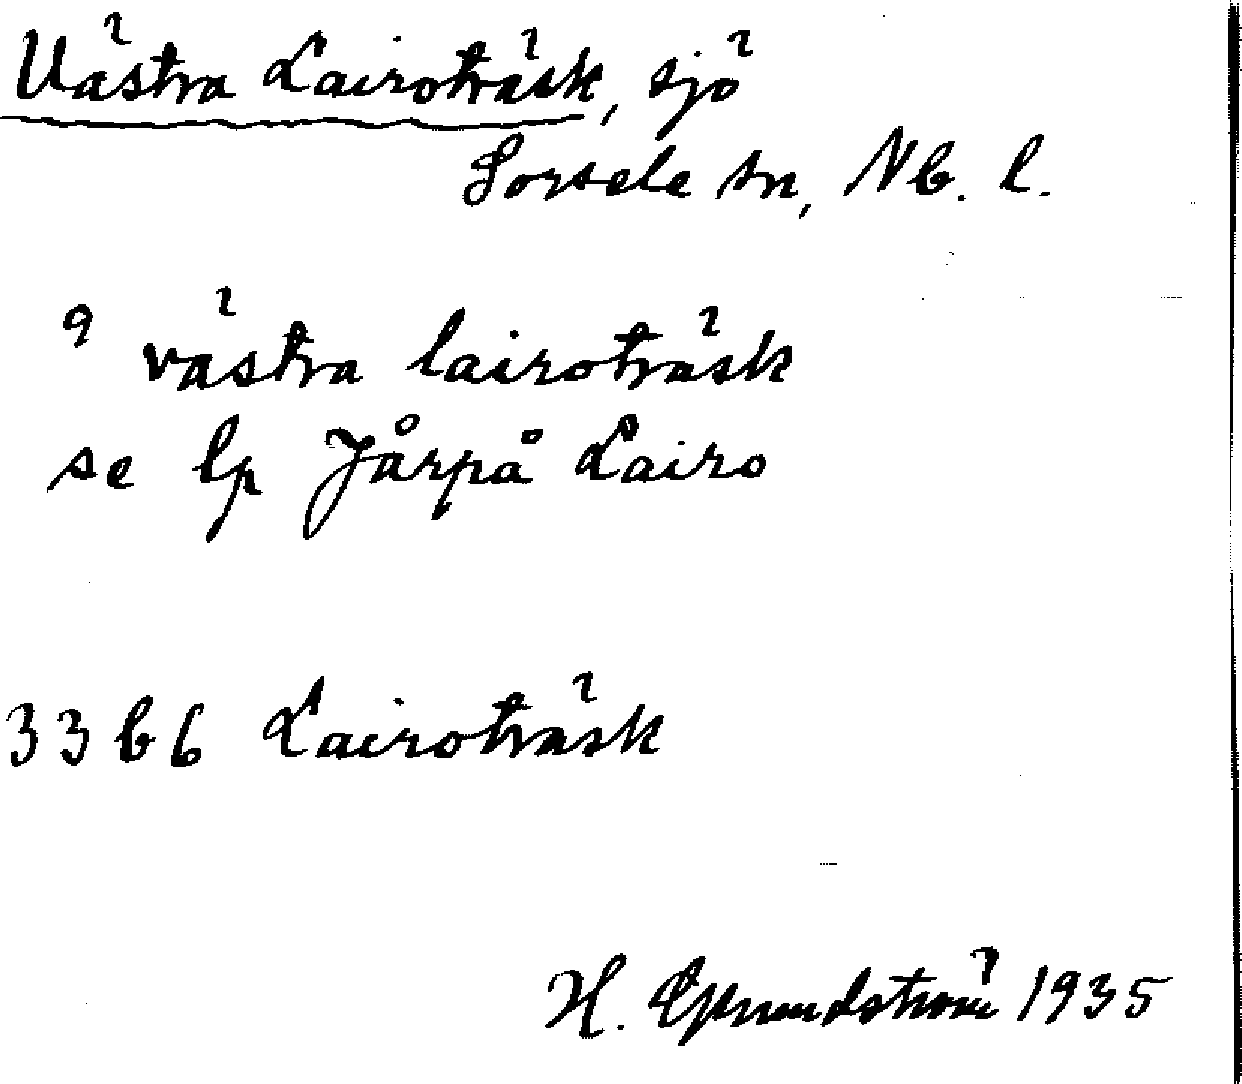 Västra Lairoträsk, sjö
Sorsele sn, Nb. l.
9 västra lairoträsk
se lp Jårpå Lairo
33 b 6 Lairoträsk
H. Grundström 1935